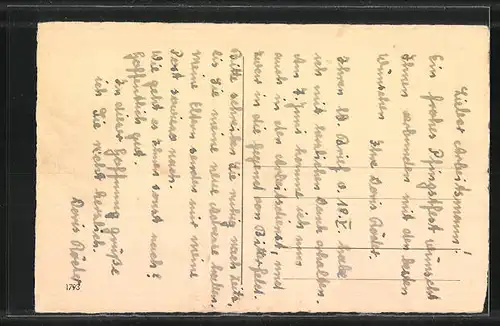 Lieber Arbeitsmann!
Ein frohes Pfingstfest wünscht
Ihnen verbunden mit den besten
Wünschen Ihre Doris Röder.
Ihren lb. Brief v. 18.V. habe
ich mit herzlichem Dank erhalten.
Am 7. Juni komme ich nun
auch in den Arbeitsdienst, und
zwar in die Gegend von Bitterfeld.
Bitte schreiben Sie ruhig nach Zeitz,
bis Sie meine neue Adresse haben.
Meine Eltern senden mir meine
Post sowieso nach.
Wie geht es Ihnen sonst noch?
Hoffentlich gut.
In dieser Hoffnung grüße
ich Sie recht herzlich
Doris Röder
1793